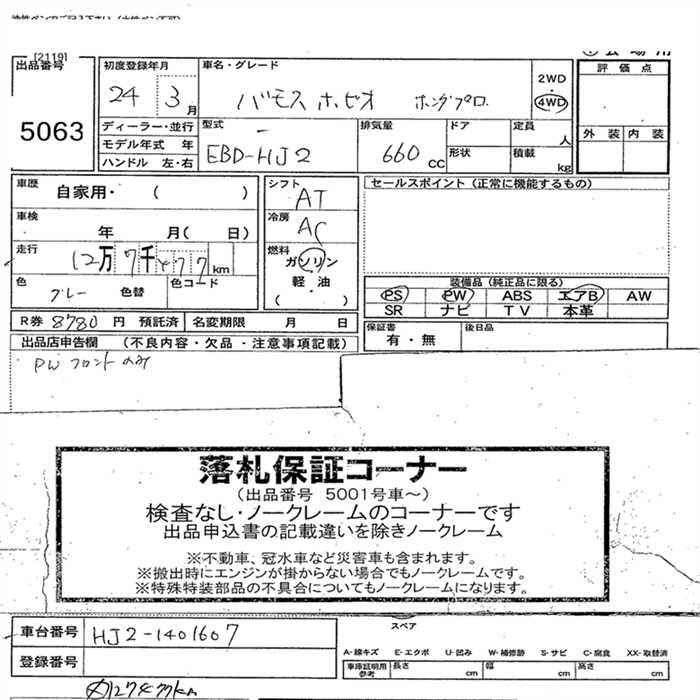 [2119]
出品番号
5063
初度登録年月
24 3月
車名・グレード
バモス ホビオ ホンダプロ
2WD
4WD
評価点
外装 内装
ディーラー・並行
モデル年式 年
ハンドル 左・右
型式
EBD-HJ2
排気量
660 cc
ドア
形状
定員
人
積載
kg
車歴
自家用・( )
車検
年 月( 日)
走行
12万7千 77km
色
グレー
色替
色コード
シフト
AT
冷房
AC
燃料
ガソリン
軽・油
( ・ )
セールスポイント(正常に機能するもの)
装備品(純正品に限る)
PS PW ABS エアB AW
SR ナビ TV 本革
R券 8780 円 預託済 名変期限 月 日
保証書
有・無
後日品
出品店申告欄 (不良内容・欠品・注意事項記載)
PW フロントのみ
落札保証コーナー
(出品番号 5001号車~)
検査なし・ノークレームのコーナーです
出品申込書の記載違いを除きノークレーム
※不動車、冠水車など災害車も含まれます。
※搬出時にエンジンが掛からない場合でもノークレームです。
※特殊特装部品の不具合についてもノークレームになります。
車台番号
HJ2-1401607
登録番号
スペア
A-線キズ E-エクボ U-凹み W-補修跡 S-サビ C-腐食 XX-取替済
車庫証明用
参考
長さ cm 幅 cm 高さ cm